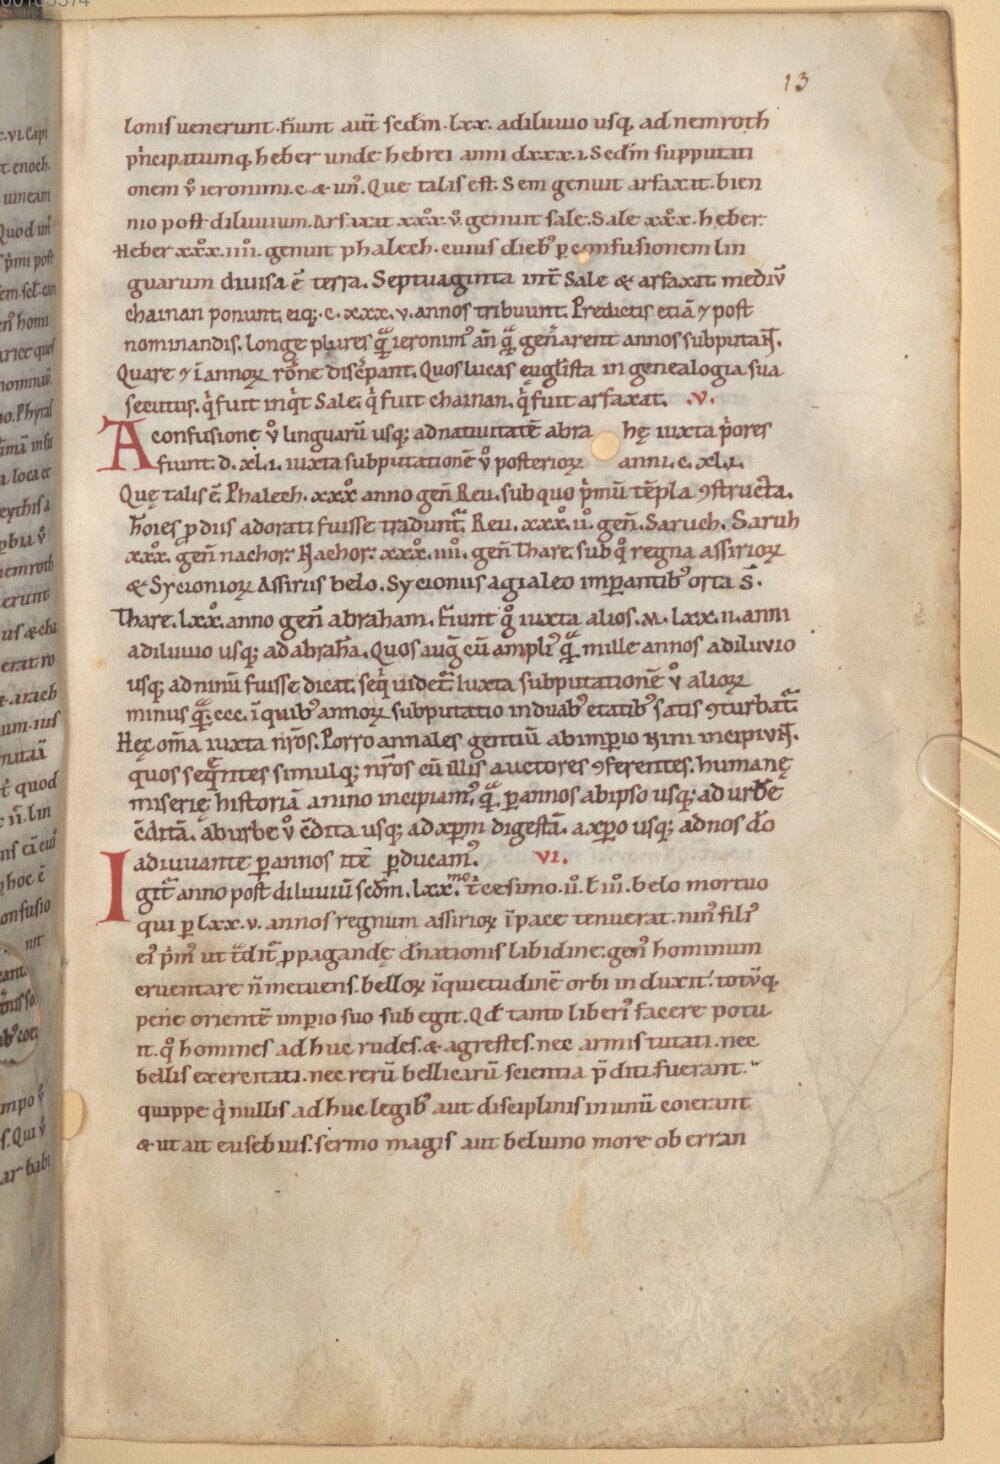 13
lonis uenerunt. Fiunt aut̄ scd̄m .lxx. adiluuio usq; ad nemroth
p̍ncipatumq; heber unde hebrei anni dxxx.i. Scd̄m supputati
onem ů ieronimi .c. & un᷒. Que talis est. Sem genuit arfaxat. bien
nio post diluuium. Arfaxat xxx̊.v. genuit sale. Sale xxx̊. heber.
Heber xxx̊.iiii. genuit phalech. cuius dieb᷒ p̱ confusionem lin
guarum diuisa ē terra. Septuaginta int̄ Sale & arfaxat mediū
chainan ponunt. eiq; .c.xxx.v. annos tribuunt. Predictis etiā ⁊ post
nominandis. longe plures qͣ̄ ieronim᷒ an̄ qͣ̄ gen̄arent annos subputan̄t.
Quare ⁊ ī annoꝝ rōne disc̄pant. Quos lucas euḡlista in genealogia sua
secutus. q̍ fuit inqͥt Sale. q̍ fuit chainan. q̍ fuit arfaxat. .v.
A confusione ů linguarū usq; ad natiuitatē abra hę iuxta p̍ores
fiunt .d.xl.i. iuxta subputationē ů posterioꝝ anni .c.xl.i.
Quę talis ē. Phalech .xxx̊. anno gen̄ Reu. sub quo p̍mū tēpla ꝯstructa.
h̄oies p̱ diis adorati fuisse tradunt᷑. Reu .xxx̊.ii̊. gen̄. Saruch. Saruh
xxx̊. gen̄ nachor. Nachor .xxx̊.iiii̊. gen̄ Thare. sub qͦ regna assirioꝝ
& Sycionioꝝ Assirius belo. Sycionus agialeo imperantib᷒ orta s̄.
Thare .lxx̊. anno gen̄ abraham. Fiunt gͦ iuxta alios .M.lxx.ii. anni
adiluuio usq; ad abrah̄a. Quos aug̃ cū ampli᷒ qͣ̄ mille annos adiluvio
usq; ad ninū fuisse dicat. seq̍ uidet᷑. Iuxta subputationē ů alioꝝ
minus qͣ̄ .ccc. ī quib᷒ annoꝝ subputatio in duab᷒ etatib᷒ satis ꝯturbat᷑.
Hęc om̄a iuxta nr̄os. Porro annales gentiū ab imp̱io Nini incipiun̄t.
quos seqͣntes simulq; nr̄os cū illis auctores ꝯferentes. humanę
miserię historiā a nino incipiam᷒. qͣ̄ p̱ annos ab ipso usq; ad urbē
c̄ditā. ab urbe ů c̄dita usq; ad xp̄m digestā. a xp̄o usq; ad nos dō
adiuuante p̱ annos itē p̱ducam᷒. vi.
Igit᷑ anno post diluuiū scd̄m .lxx.mo t̍cesimo .ii̊. ł iii̊. belo mortuo
qui p̱ lxx.v. annos regnum assirioꝝ ī pace tenuerat. nin᷒ fili᷒
ei᷒ p̍m᷒ ut t̄dit᷑ ꝓpagandę dn̄ationis libidine. gen᷒ hominum
eruentare n̄ metuens. belloꝝ īquietudinē orbi induxit. totūq;
pene orientē imp̱io suo subegit. Qđ tanto liberi᷒ facere potu
it. qͦ homines adhuc rudes. & agrestes. nec armis tutati. nec
bellis exercitati. nec rerū bellicarū scientia p̄diti fuerant.
quippe q̍ nullis adhuc legib᷒ aut disciplinis in unū coierant
& ut ait eusebius. sermo magis aut beluino more oberran